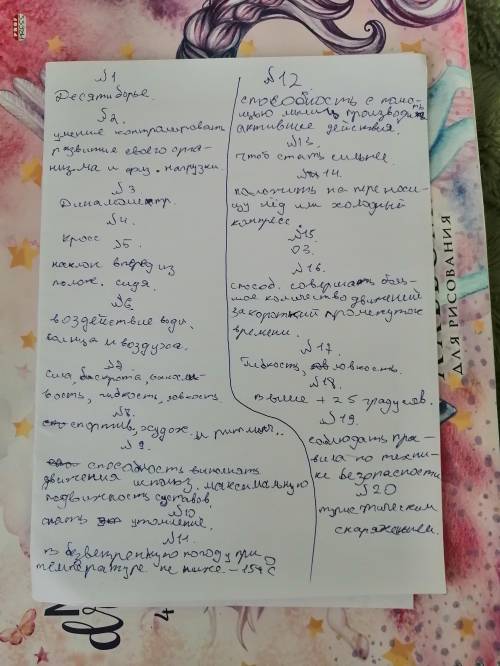 №1
Десятиборье.
№2.
умение контролировать
развитие своего орга-
низма и физ. нагрузки
№3
Динамометр.
№4.
Кросс
№5.
наклон вперед из
полож. сидя.
№6.
воздействие воды,
солнца и воздуха.
№7
сила, быстрота, вынос-
вость, гибкость, ловкость
№8.
спортив, худож. и ритмич..
№9.
способность выполнять
движения используя максимальную
подвижность суставов.
№10
снять утомление.
№11.
в безветренную погоду при
температуре не ниже -15°C
№12
способность с помо-
щью мышц производить
активные действия.
№13.
чтоб стать сильнее.
№14.
положить на переноси-
цу лёд или холодный
компресс.
№15
03.
№16.
способ. совершать боль-
шое количество движений
за короткий промежуток
времени.
№17.
Гибкость, ловкость.
№18.
выше +25 градусов.
№19.
соблюдать пра-
вила по техни-
ке безопасности
№20
туристическим
снаряжением.
ДЛЯ РИСОВАНИЯ